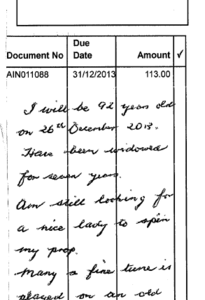 Due
Document No Date Amount ✓
AIN011088 31/12/2013 113.00
I will be 92 years old
on 26th December 2013.
Have been widowed
for seven years.
Am still looking for
a nice lady to spin
my prop.
Many a fine tune is
played on an old